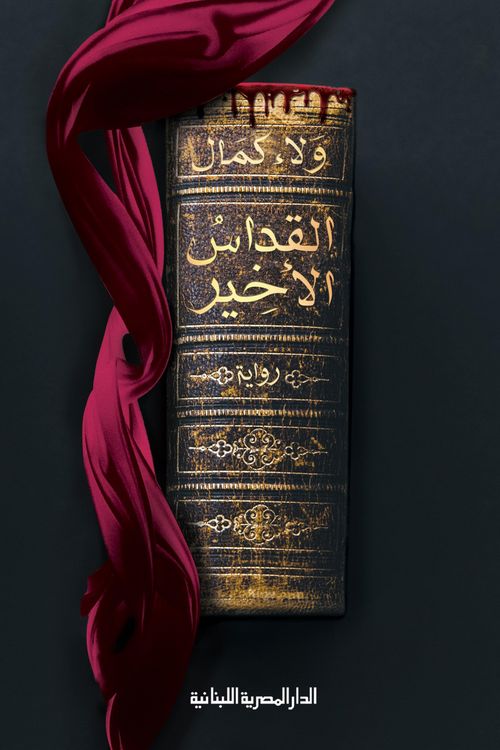 ولاء كمال
القداسُ
الأخِير
رواية
الدار المصرية اللبنانية